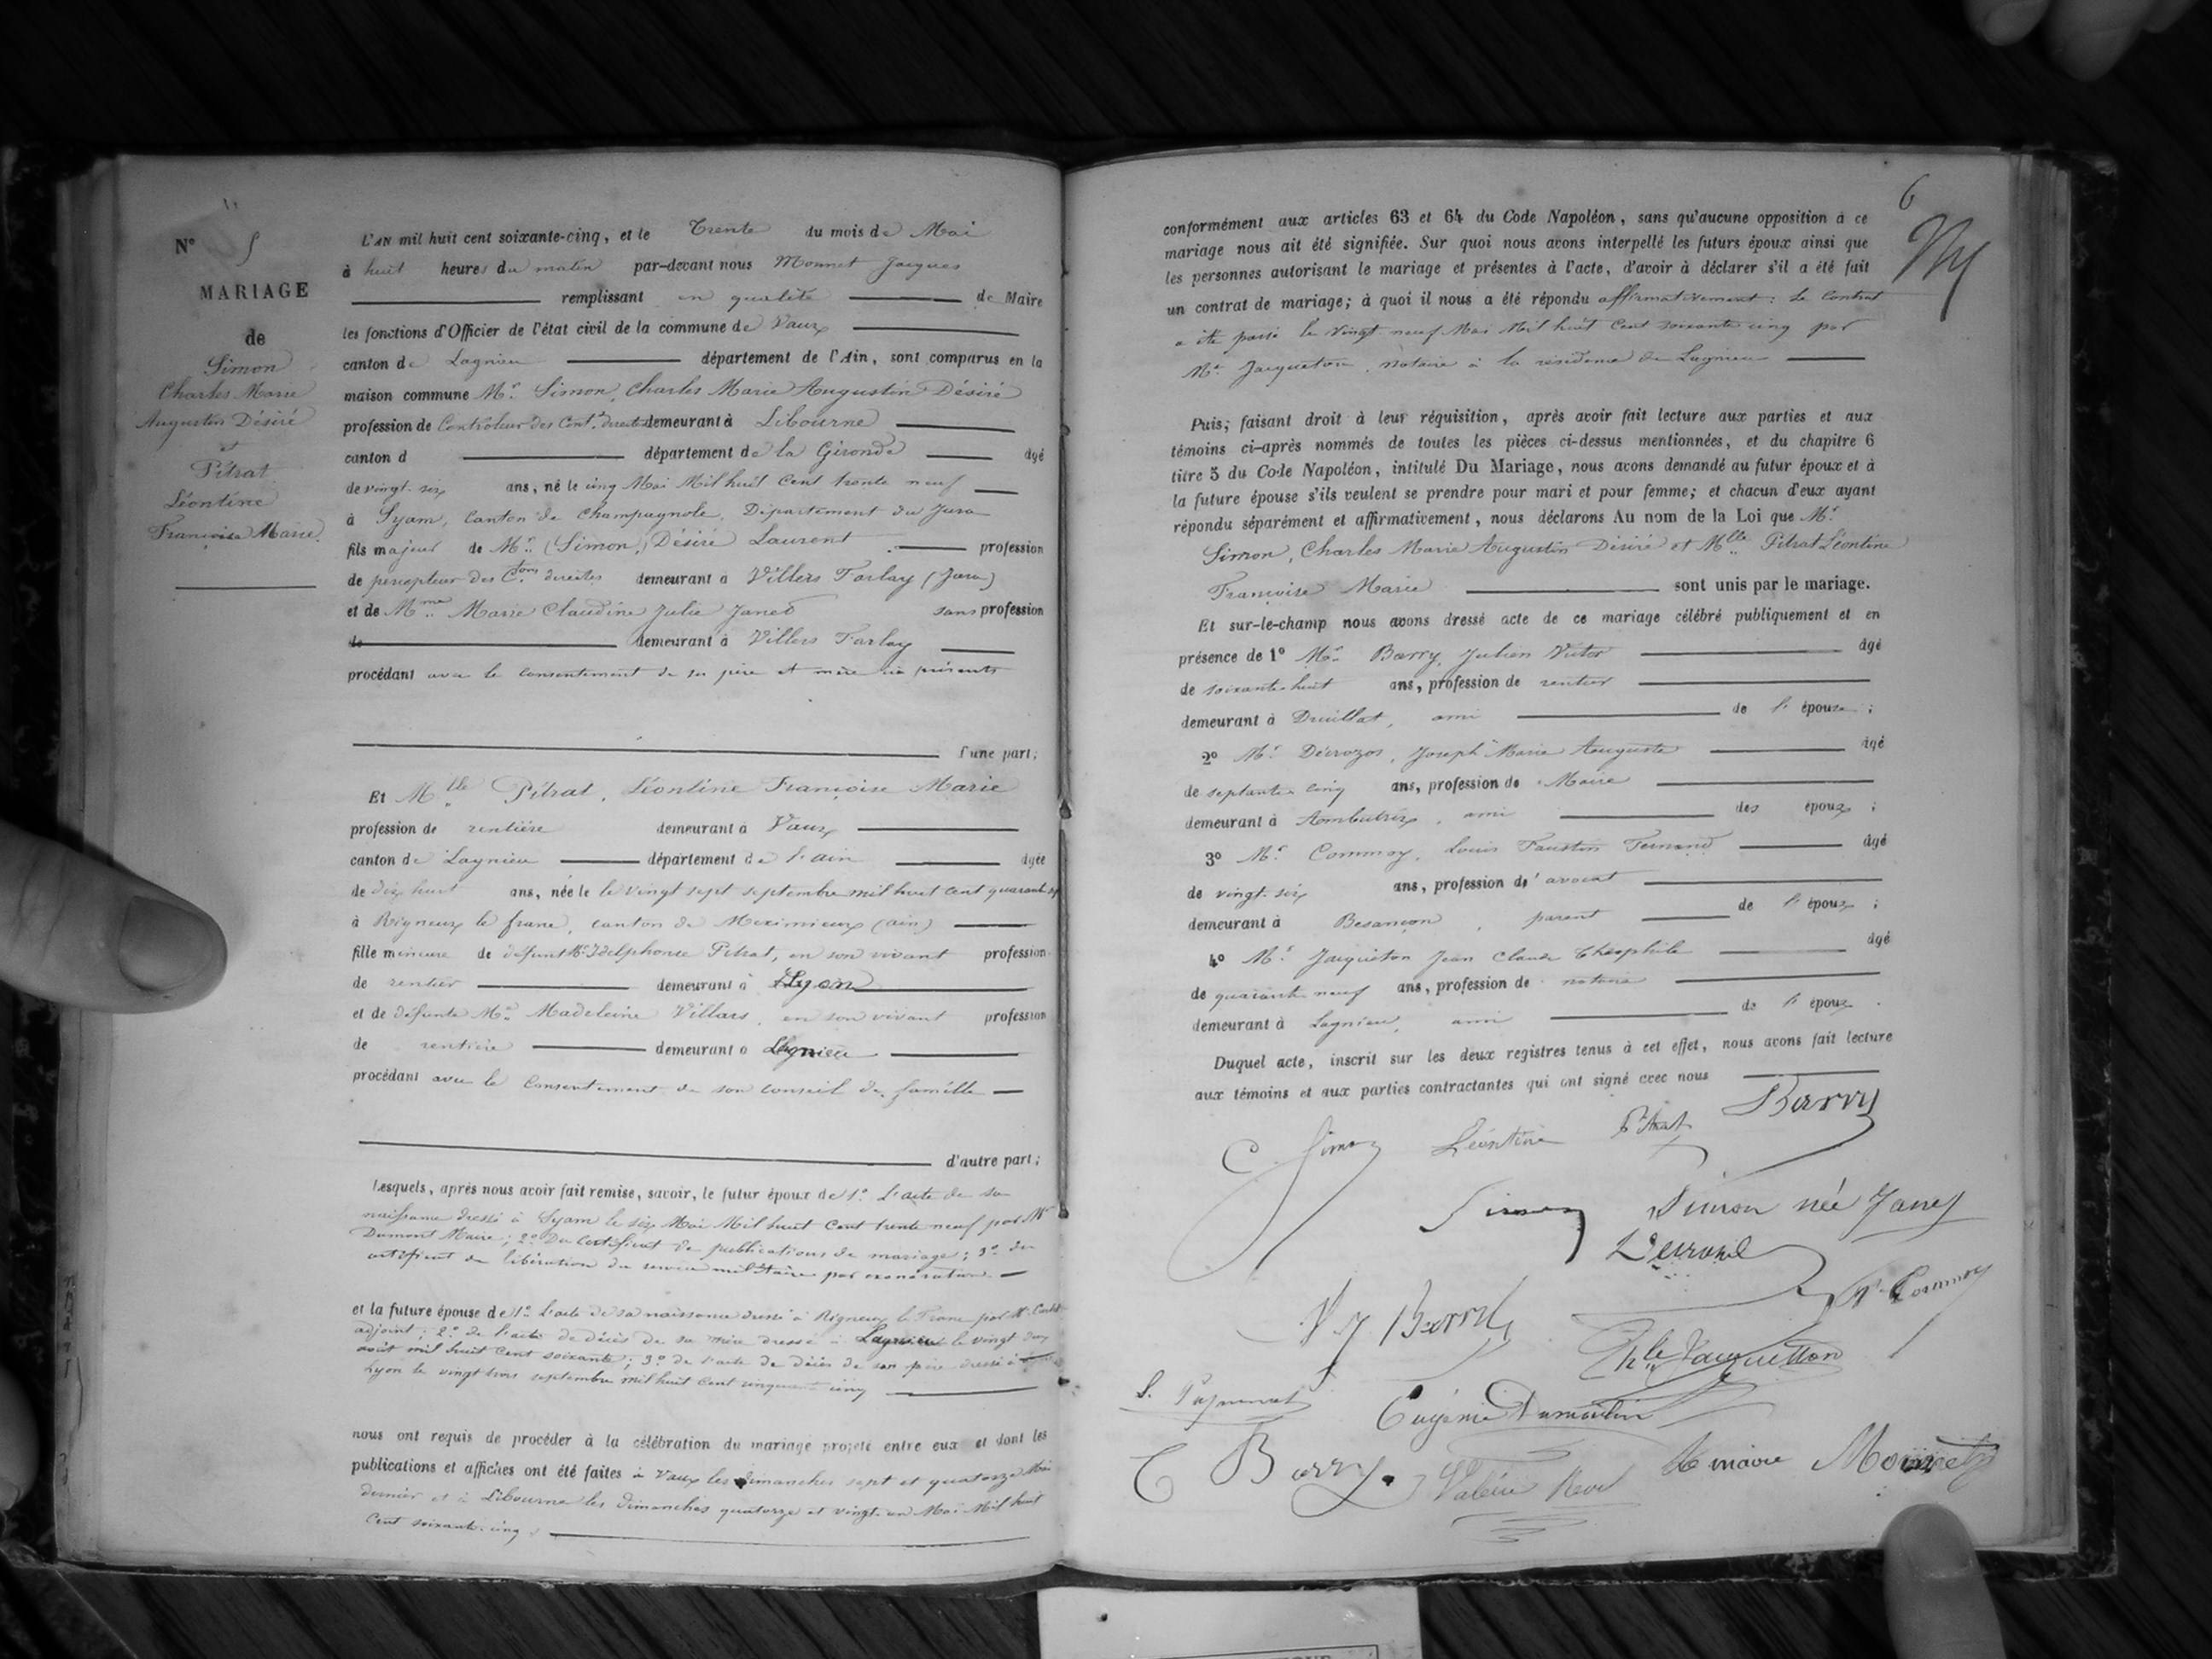 N° 5
MARIAGE
de
Simon
Charles Marie
Augustin Désiré
et
Pitrat
Léontine
Françoise Marie.
L'AN mil huit cent soixante-cinq, et le Trente du mois de Mai
à huit heures du matin par-devant nous Monnet Jacques
remplissant en qualité de Maire
les fonctions d'Officier de l'état civil de la commune de Vaux
canton de Lagnieu département de l'Ain, sont comparus en la
maison commune Mr. Simon, Charles Marie Augustin Désiré
profession de Controleur des Cont. directes demeurant à Libourne
canton d département de la Gironde âgé
de vingt-six ans, né le cinq Mai Mil huit Cent trente neuf
à Syam, Canton de Champagnole, Département du Jura
fils majeur de Mr. (Simon,) Désiré Laurent profession
de percepteur des Ctons directes demeurant à Villers Farlay (Jura)
et de Mme Marie Claudine Julie Janet sans profession
de demeurant à Villers Farlay
procédant avec le consentement de ses père et mère ici présents
d'une part;
Et Mlle Pitrat, Léontine Françoise Marie
profession de rentière demeurant à Vaux
canton de Lagnieu département de l'ain âgée
de dix huit ans, née le le vingt sept septembre mil huit cent quarante
à Rigneux le franc, canton de Meximieux (ain)
fille mineure de défunt Mr Idelphonse Pitrat, en son vivant profession
de rentier demeurant à Lyon
et de défunte Me Madeleine Villars, en son vivant profession
de rentière demeurant à Lagnieu
procédant avec le Consentement de son conseil de famille
d'autre part;
Lesquels, après nous avoir fait remise, savoir, le futur époux de 1° L'acte de sa
naissance dressé à Syam le six Mai Mil huit Cent trente neuf par Mr
Dumont Maire; 2° Du Certificat de publications de mariage; 3° du
certificat de libération du service militaire par exonération
et la future épouse de 1° L'acte de sa naissance dressé à Rigneux le Franc par Mr
adjoint; 2° de l'acte de décès de sa mère dressé à Lagnieu le vingt deux
août mil huit Cent soixante; 3° de l'acte de décès de son père dressé à
Lyon le vingt trois septembre mil huit Cent cinquante cinq
nous ont requis de procéder à la célébration du mariage projeté entre eux et dont les
publications et affiches ont été faites à Vaux les dimanches sept et quatorze Mai
dernier et à Libourne les dimanches quatorze et vingt-un Mai Mil huit
Cent soixante-cinq
6
conformément aux articles 63 et 64 du Code Napoléon, sans qu'aucune opposition à ce
mariage nous ait été signifiée. Sur quoi nous avons interpellé les futurs époux ainsi que
les personnes autorisant le mariage et présentes à l'acte, d'avoir à déclarer s'il a été fait
un contrat de mariage; à quoi il nous a été répondu affirmativement: Le Contrat
a été passé le vingt-neuf Mai Mil huit Cent soixante cinq par
Me Jacqueton, notaire à la résidence de Lagnieu
Puis; faisant droit à leur réquisition, après avoir fait lecture aux parties et aux
témoins ci-après nommés de toutes les pièces ci-dessus mentionnées, et du chapitre 6
titre 5 du Code Napoléon, intitulé Du Mariage, nous avons demandé au futur époux et à
la future épouse s'ils veulent se prendre pour mari et pour femme; et chacun d'eux ayant
répondu séparément et affirmativement, nous déclarons Au nom de la Loi que Mr
Simon, Charles Marie Augustin Désiré et Mlle Pitrat Léontine
Françoise Marie sont unis par le mariage.
Et sur-le-champ nous avons dressé acte de ce mariage célébré publiquement et en
présence de 1° Mr Barry, Julien Victor âgé
de soixante-huit ans, profession de rentier
demeurant à Druillat, ami de l'épouse;
2° Mr Décrozos, Joseph Marie Auguste âgé
de septante cinq ans, profession de Maire
demeurant à Ambutrix, ami des époux;
3° Mr Commoy, Louis Faustin Fernand âgé
de vingt-six ans, profession d'avocat
demeurant à Besançon, parent de l'époux;
4° Mr Jacqueton Jean Claude Théophile âgé
de quarante neuf ans, profession de notaire
demeurant à Lagnieu, ami de l'époux.
Duquel acte, inscrit sur les deux registres tenus à cet effet, nous avons fait lecture
aux témoins et aux parties contractantes qui ont signé avec nous
C. Simon Léontine Pitrat Barry
Simon Simon née Janet
V J Barry F. Commoy
Thle Jacquetton
Eugénie Dumoulin
C Barry Valérie Le maire Monnet